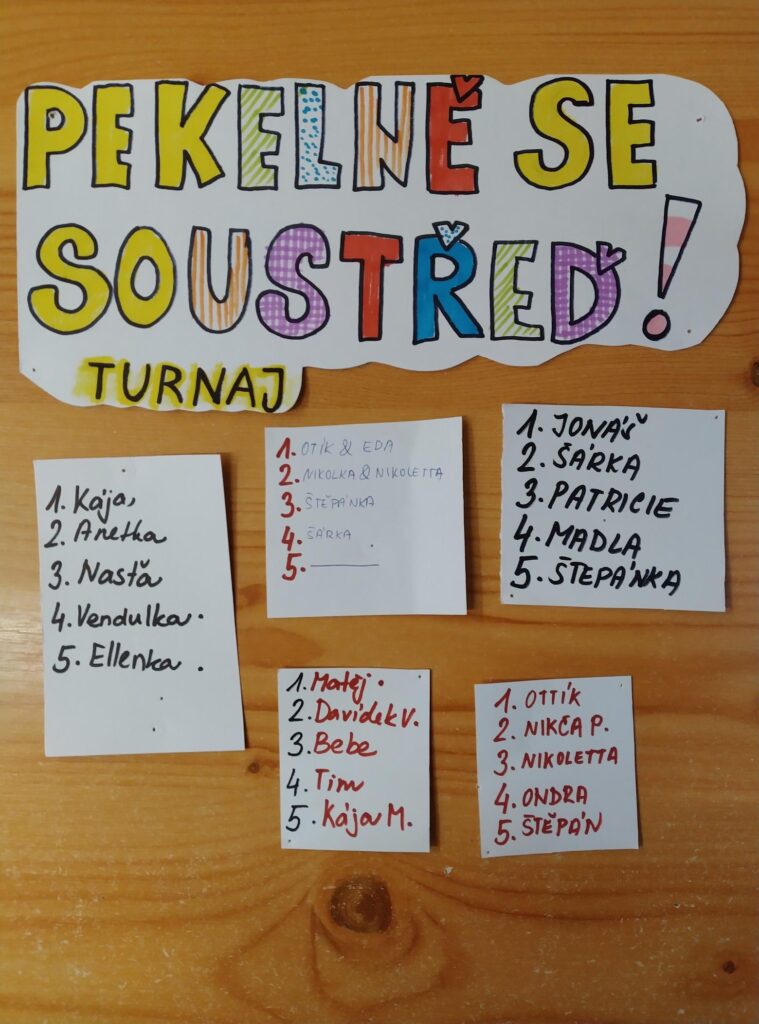 PEKELNĚ SE
SOUSTŘEĎ!
TURNAJ
1. Kája,
2. Anetka
3. Nasťa
4. Vendulka.
5. Ellenka.
1. OTÍK & EDA
2. NIKOLKA & NIKOLETTA
3. ŠTĚPÁNKA
4. ŠÁRKA
5.
1. JONÁŠ
2. ŠÁRKA
3. PATRICIE
4. MADLA
5. ŠTEPÁNKA
1. Matěj.
2. Davídek V.
3. Bebe
4. Tim
5. Kája M.
1. OTTÍK
2. NIKČA P.
3. NIKOLETTA
4. ONDRA
5. ŠTĚPÁN